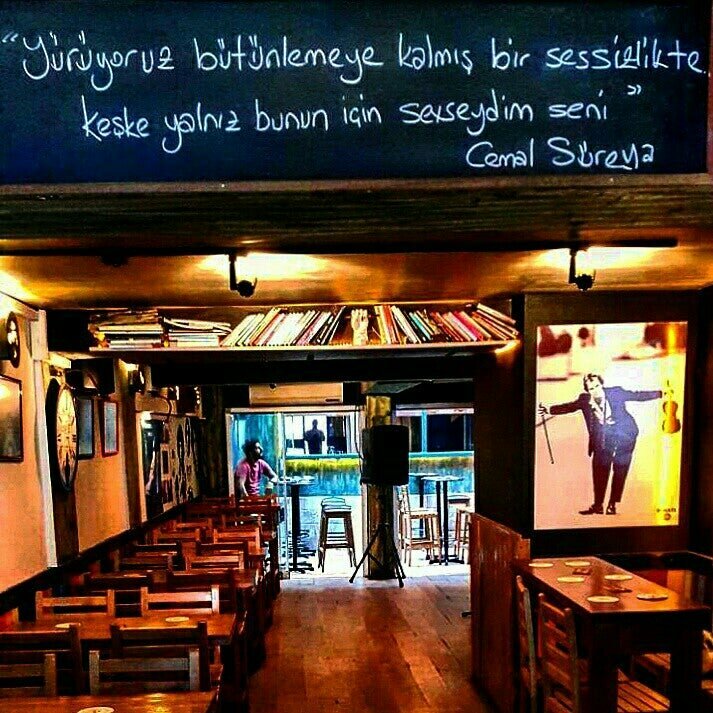 “Yürüyoruz bütünlemeye kalmış bir sessizlikte..
keşke yalnız bunun için sevseydim seni”
Cemal Süreya